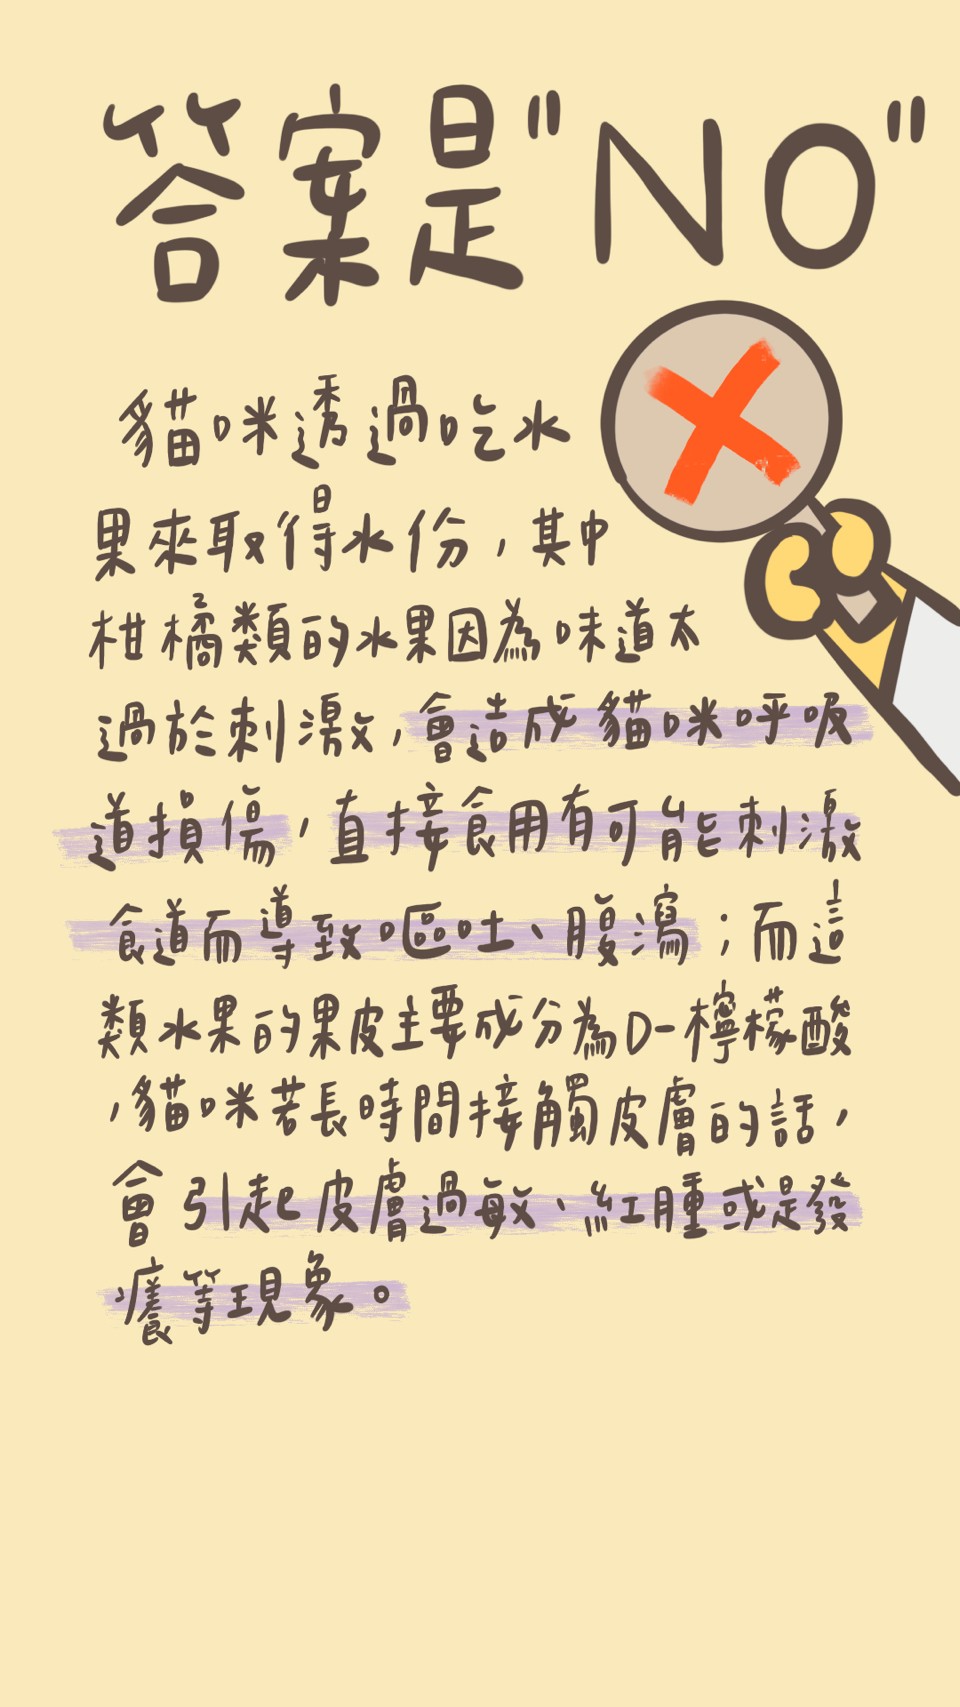 答案是"NO"
貓咪透過吃水
果來取得水份，其中
柑橘類的水果因為味道太
過於刺激，會造成貓咪呼吸
道損傷，直接食用有可能刺激
食道而導致嘔吐、腹瀉；而這
類水果的果皮主要成分為D-檸檬酸
，貓咪若長時間接觸皮膚的話，
會引起皮膚過敏、紅腫或是發
癢等現象。